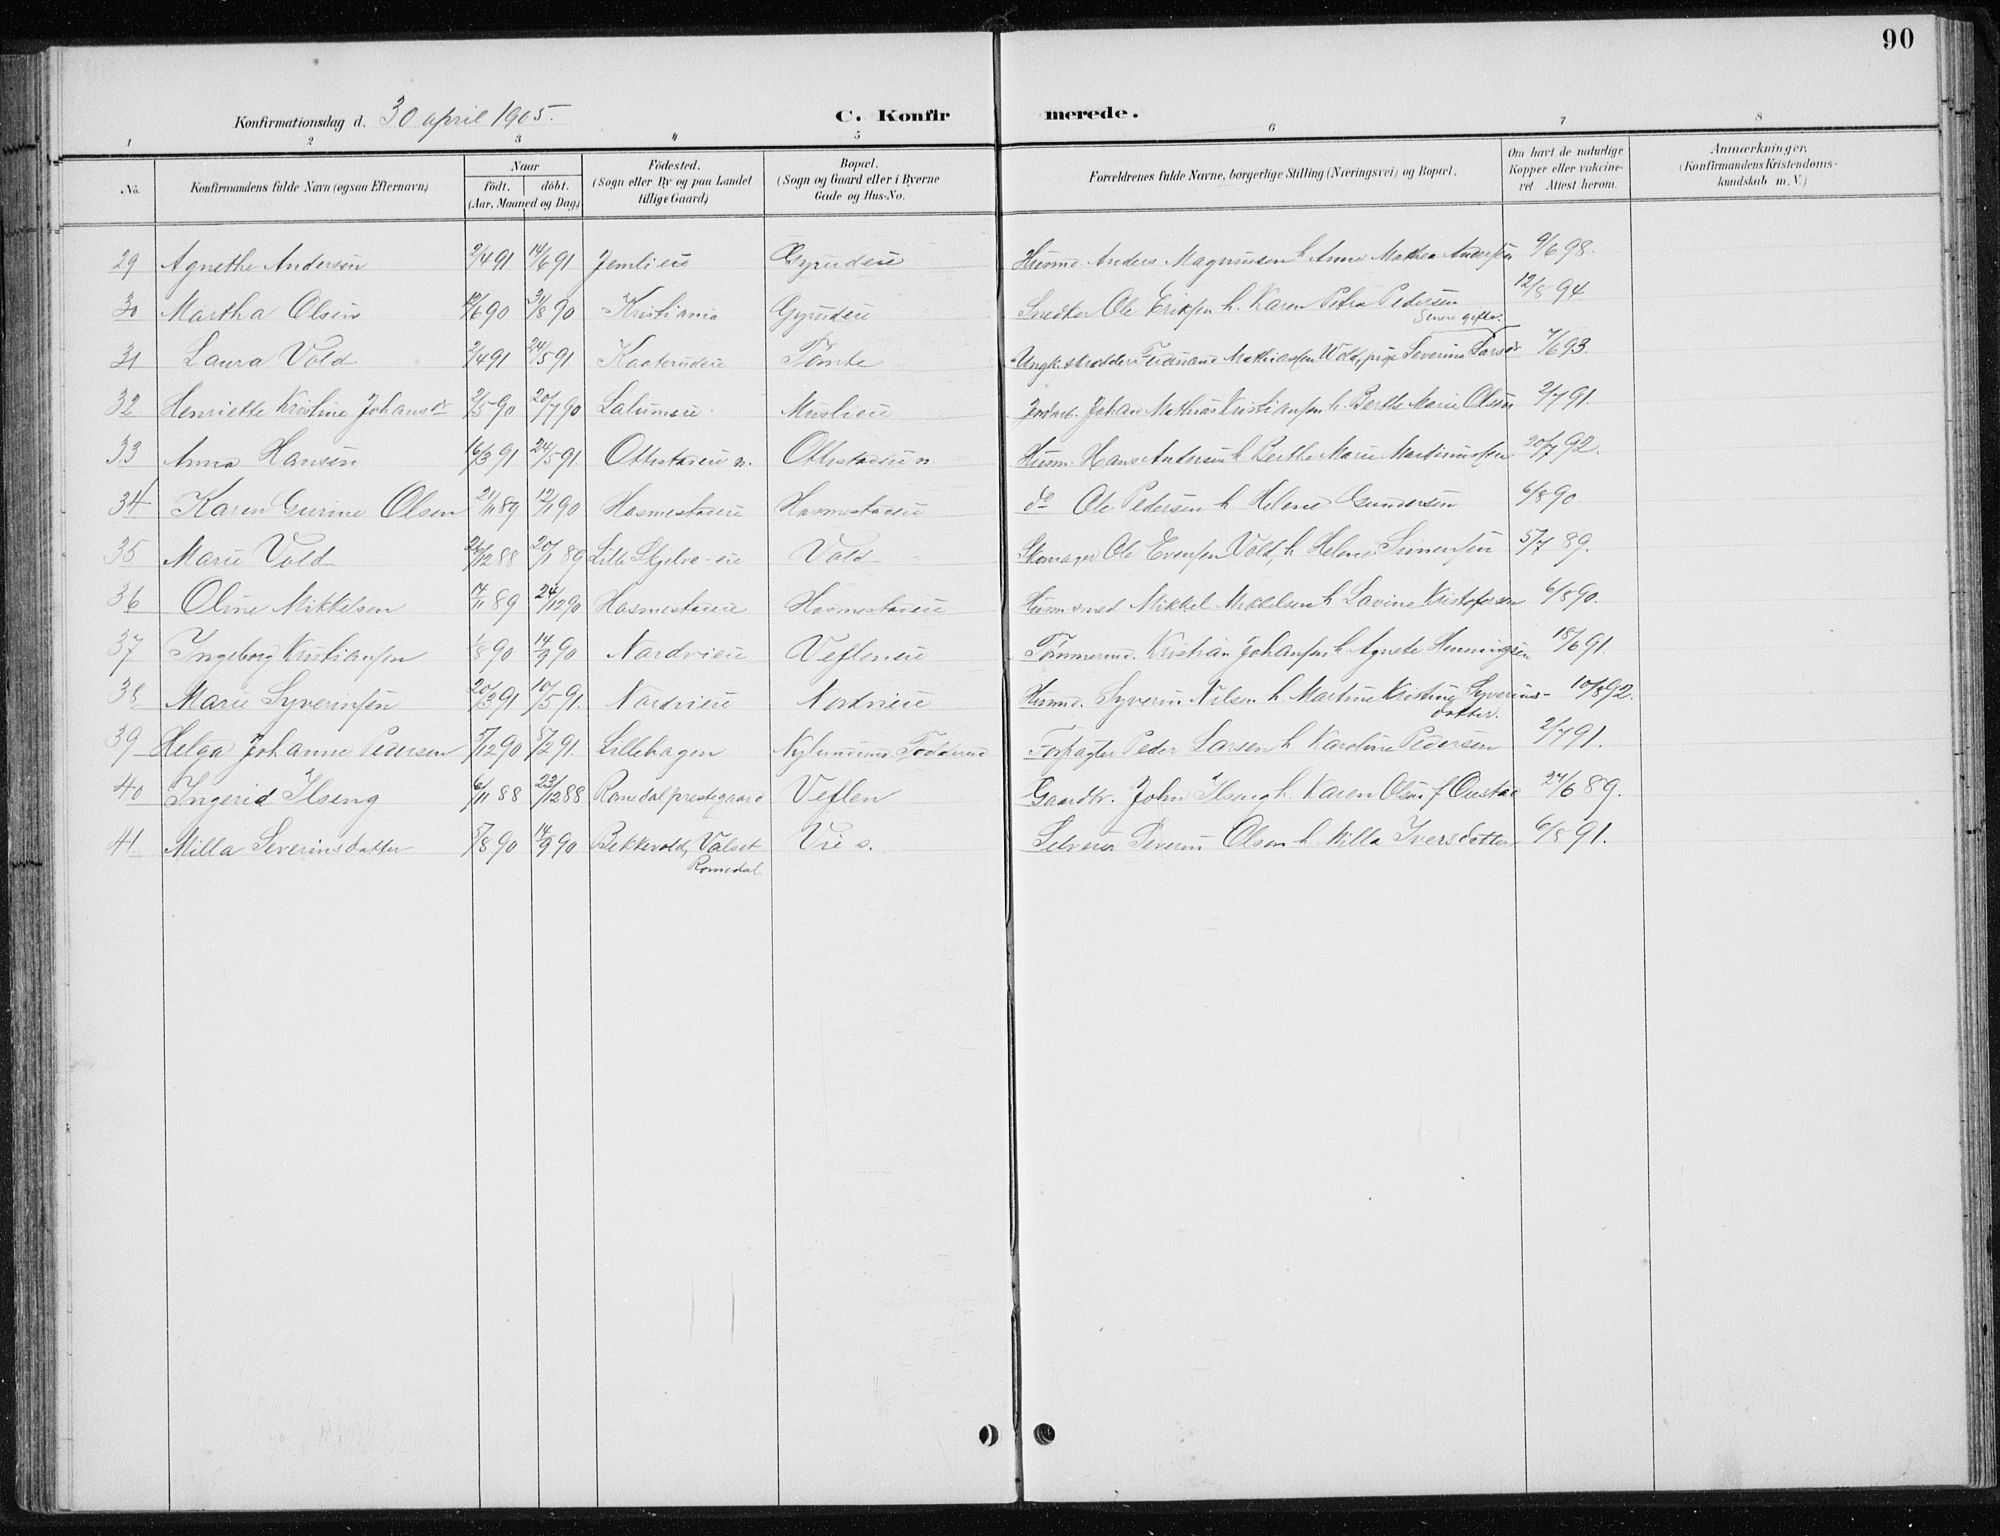 90
Konfirmationsdag d. 30 april 1905. C. Konfirmerede.
1 2 3 4 5 6 7 8
No. Konfirmandens fulde Navn (ogsaa Efternavn) Naar födt. döbt. (Aar, Maaned og Dag) Födested. (Sogn eller By og paa Landet tillige Gaard) Bopæl. (Sogn og Gaard eller i Byerne Gade og Hus-No. Forældrenes fulde Navne, borgerlige Stilling (Næringsvei) og Bopæl. Om havt de naturlige Kopper eller vakcineret. Attest herom. Anmærkninger. (Konfirmandens Kristendomskundskab m. V.)
29 Agnethe Andersen 2/4 91 14/6 91 Jemlieie Gyrudeie Husmd. Anders Magnussen h Anne Mathea Andersen 9/6 98.
30 Martha Olsen 12/6 90 31/8 90 Kristiania Gyrudeie Snedker Ole Eriksen h. Karen Petra Pedersen 12/8 94
Senere gifte.
31 Laura Vold 2/4 91 24/5 91 Kaaterudeie Tomte Ungk. skrædder Ferdinand Mathiassen Wold, pige Severine Larsdr 7/6 93.
32 Henriette Kristine Johansdr 2/5 90 20/7 90 Lalumeie Muslieie Jordarb. Johan Mathias Kristiansen h. Berthe Marie Olsen 2/7 91.
33 Anna Hansen 16/3 91 24/5 91. Ottestadeie n. Ottestadeie n Husm. Hans Andersen h Berthe Marie Martinussen 20/7 92.
34 Karen Gurine Olsen 21/11 89 12/1 90 Hasmestadeie Hasmestadeie do Ole Pedersen h Helene Gundersen 6/8 90
35 Marie Vold 26/12 88 20/1 89 Lille Skjelve-eie Vold Skomager Ole Evensen Vold, h Helene Simensen 5/7 89.
36 Oline Mikkelsen 17/11 89 24/12 90 Hasmestadeie Hasmestadeie Husm smed Mikkel Mikkelsen h Lavine Kristofersen 6/8 90.
37 Ingeborg Kristiansen 1/8 90 14/9 90 Nordvieie Vefleneie Tømmermd. Kristian Johansen h Agnete Henningsen 18/6 91.
38 Marie Syverinsen 20/3 91 10/5 91. Nordvieie Nordvieie Husmd. Syverin Nilsen h Martine Kristine Syverins- 10/8 92.
datter.
39 Helga Johanne Pedersen 5/12 90 8/2 91. Lillehagen Nylund Forpagter Peder Larsen h Karoline Pedersen 2/7 91.
40 Ingerid Ilseng 6/11 88 23/12 88 Romedal prestegaard Veflen Gaardbr. John Ilseng h. Karen Olsen f Ousta 27/6 89.
41. Milla Severinsdatter 5/8 90 14/9 90 Bekkevold, Valset Vie s. Selveier Severin Olsen h Milla Iversdatter 6/8 91.
Romedal